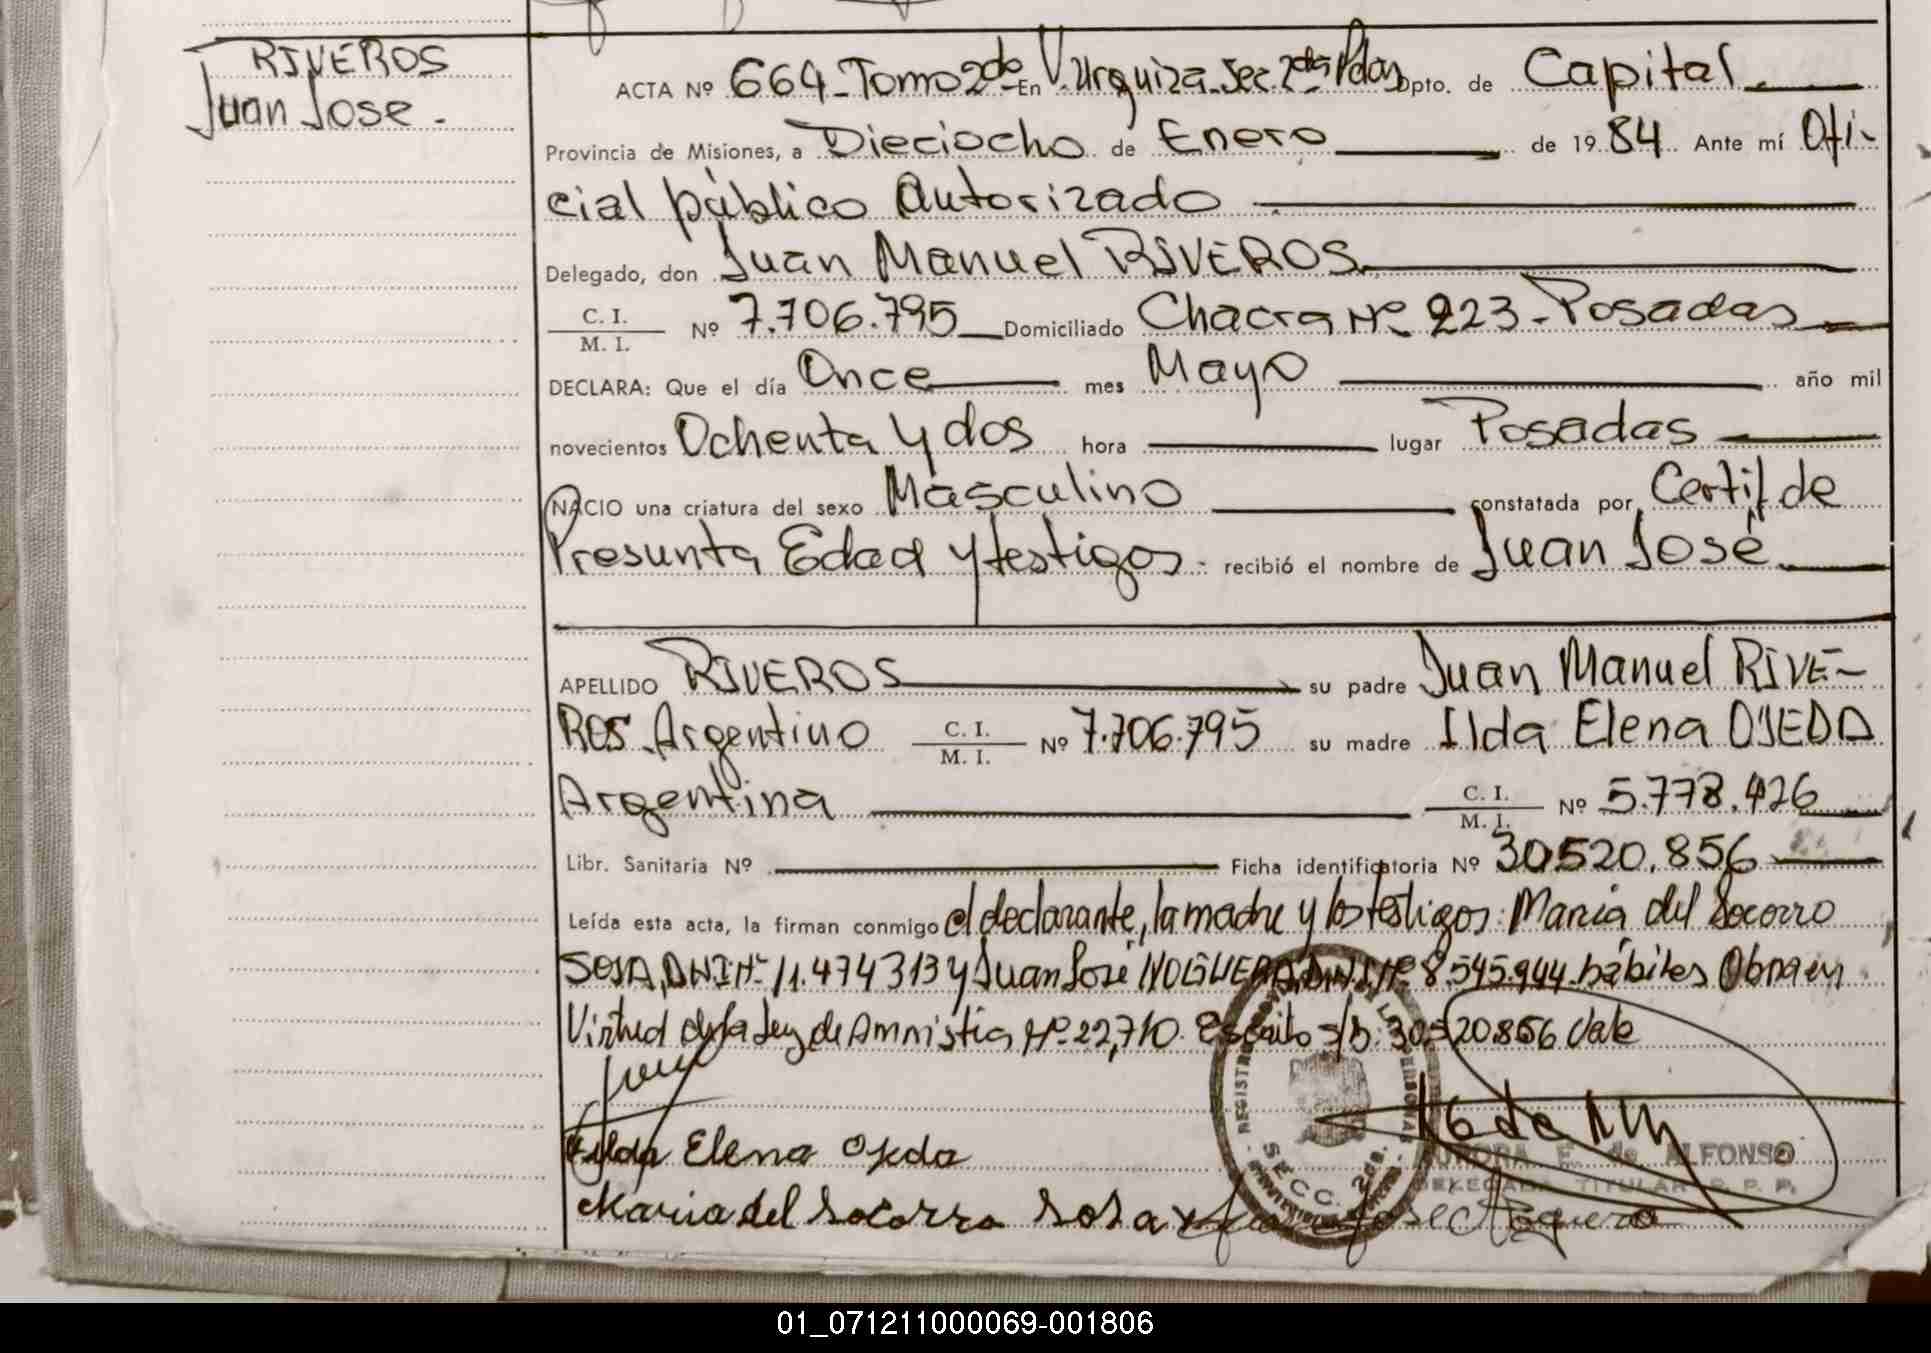 RIVEROS
Juan Jose.
ACTA Nº 664 - Tomo 2do En V. Urquiza. Sec. 2da Pdas Dpto. de Capital
Provincia de Misiones, a Dieciocho de Enero de 1984 Ante mí Ofi-
cial público Autorizado
Delegado, don Juan Manuel RIVEROS
C. I.
M. I. Nº 7.706.795 Domiciliado Chacra Nº 223 - Posadas
DECLARA: Que el día Once mes Mayo año mil
novecientos Ochenta y dos hora lugar Posadas
NACIO una criatura del sexo Masculino constatada por Certif. de
Presunta Edad y testigos - recibió el nombre de Juan José
APELLIDO RIVEROS su padre Juan Manuel RIVE-
ROS Argentino C. I.
M. I. Nº 7.706.795 su madre Ilda Elena OJEDA
Argentina C. I.
M. I. Nº 5.778.426
Libr. Sanitaria Nº Ficha identificatoria Nº 30520.856
Leída esta acta, la firman conmigo el declarante, la madre y los testigos: Maria del Socorro
SOSA, DNI Nº 11.474313 y Juan José NOGUERA, D.N.I. Nº 8.545.944. hábiles Obra en
Virtud de la Ley de Amnistia Nº 22,710. Escrito s/b: 30520856 Vale
Ilda Elena Ojeda
AURORA F. de ALFONSO
DELEGADA TITULAR R. P. P.
Maria del Socorro Sosa y Juan Jose Noguera
SECC. 2da.
01_071211000069-001806